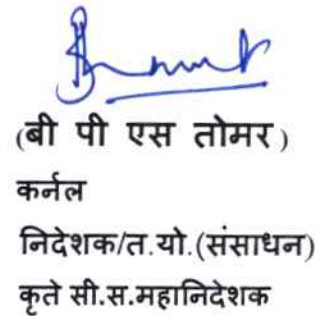 (बी पी एस तोमर)
कर्नल
निदेशक/त.यो.(संसाधन)
कृते सी.स.महानिदेशक